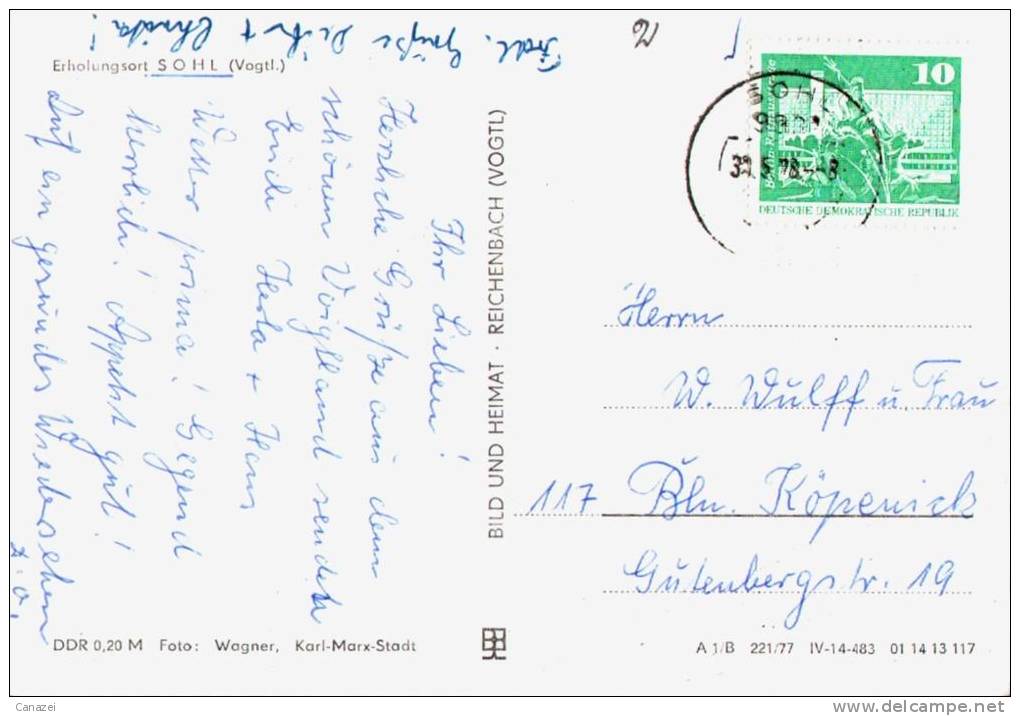 Frdl. Grüße Dieter + Christa!
Erholungsort SOHL (Vogtl.)
Ihr Lieben!
Herzliche Grüße aus dem
schönen Vogtland sendet
Euch Herta + Hans
Wetter prima! Gegend
herrlich! Appetit gut!
Auf ein gesundes Wiedersehen
BILD UND HEIMAT · REICHENBACH (VOGTL)
10
DEUTSCHE DEMOKRATISCHE REPUBLIK
SOHL
Herrn
W. Wulff u. Frau
117 Bln. Köpenick
Gutenbergstr. 19
DDR 0,20 M Foto: Wagner, Karl-Marx-Stadt
A 1/B 221/77 IV-14-483 01 14 13 117
Canazei
http://www.delcampe.net